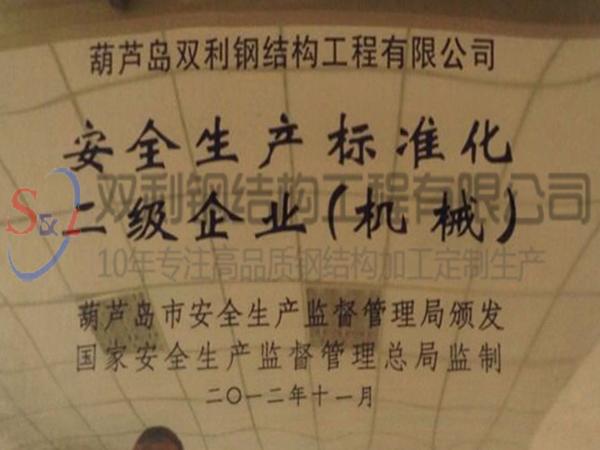 葫芦岛双利钢结构工程有限公司
安全生产标准化
S&L 双利钢结构工程有限公司
二级企业(机械)
10年专注高品质钢结构加工定制生产
葫芦岛市安全生产监督管理局颁发
国家安全生产监督管理总局监制
二〇一二年十一月